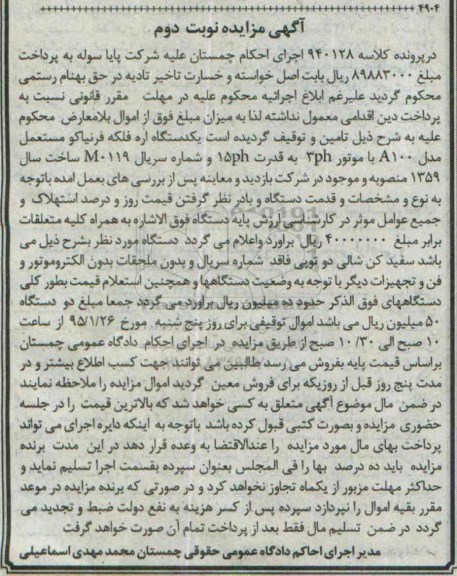 ۴۹۰۴
آگهی مزایده نوبت دوم
درپرونده کلاسه ۹۴۰۱۲۸ اجرای احکام چمستان علیه شرکت پایا سوله به پرداخت
مبلغ ۸۹۸۸۳۰۰۰ ریال بابت اصل خواسته و خسارت تاخیر تادیه در حق بهنام رستمی
محکوم گردید علیرغم ابلاغ اجرائیه محکوم علیه در مهلت مقرر قانونی نسبت به
پرداخت دین اقدامی معمول نداشته لذا به میزان مبلغ فوق از اموال بلامعارض محکوم
علیه به شرح ذیل تامین و توقیف گردیده است یکدستگاه اره فلکه فرنیاکو مستعمل
مدل A۱۰۰ با موتور ۳ph به قدرت ۱۵ph و شماره سریال M۰۱۱۹ ساخت سال
۱۳۵۹ منصوبه و موجود در شرکت بازدید و معاینه پس از بررسی های بعمل امده باتوجه
به نوع و مشخصات و قدمت دستگاه و بادر نظر گرفتن قیمت روز و درصد استهلاک و
جمیع عوامل موثر در کارشناسی ارزش پایه دستگاه فوق الاشاره به همراه کلیه متعلقات
برابر مبلغ ۴۰۰۰۰۰۰۰ ریال برآورد واعلام می گردد دستگاه مورد نظر بشرح ذیل می
باشد سفید کن شالی دو توپی فاقد شماره سریال و بدون ملحقات بدون الکتروموتور و
فن و تجهیزات دیگر با توجه به وضعیت دستگاهها و همچنین استعلام قیمت بطور کلی
دستگاههای فوق الذکر حدود ده میلیون ریال برآورد می گردد جمعا مبلغ دو دستگاه
۵۰ میلیون ریال می باشد اموال توقیفی برای روز پنج شنبه مورخ ۹۵/۱/۲۶ از ساعت
۱۰ صبح الی ۱۰/۳۰ صبح از طریق مزایده در اجرای احکام دادگاه عمومی چمستان
براساس قیمت پایه بفروش می رسد طالبین می توانند جهت کسب اطلاع بیشتر و در
مدت پنج روز قبل از روزیکه برای فروش معین گردید اموال مزایده را ملاحظه نمایند
در ضمن مال موضوع آگهی متعلق به کسی خواهد شد که بالاترین قیمت را در جلسه
حضوری مزایده و بصورت کتبی قبول کرده باشد باتوجه به اینکه دایره اجرای می تواند
پرداخت بهای مال مورد مزایده را عندالاقتضا به وعده قرار دهد در این مدت برنده
مزایده باید ده درصد بها را فی المجلس بعنوان سپرده بقسمت اجرا تسلیم نماید و
حداکثر مهلت مزبور از یکماه تجاوز نخواهد کرد و در صورتی که برنده مزایده در موعد
مقرر بقیه اموال را نپردازد سپرده پس از کسر هزینه به نفع دولت ضبط و تجدید می
گردد در ضمن تسلیم مال فقط بعد از پرداخت تمام آن صورت خواهد گرفت
مدیر اجرای احاکم دادگاه عمومی حقوقی چمستان محمد مهدی اسماعیلی